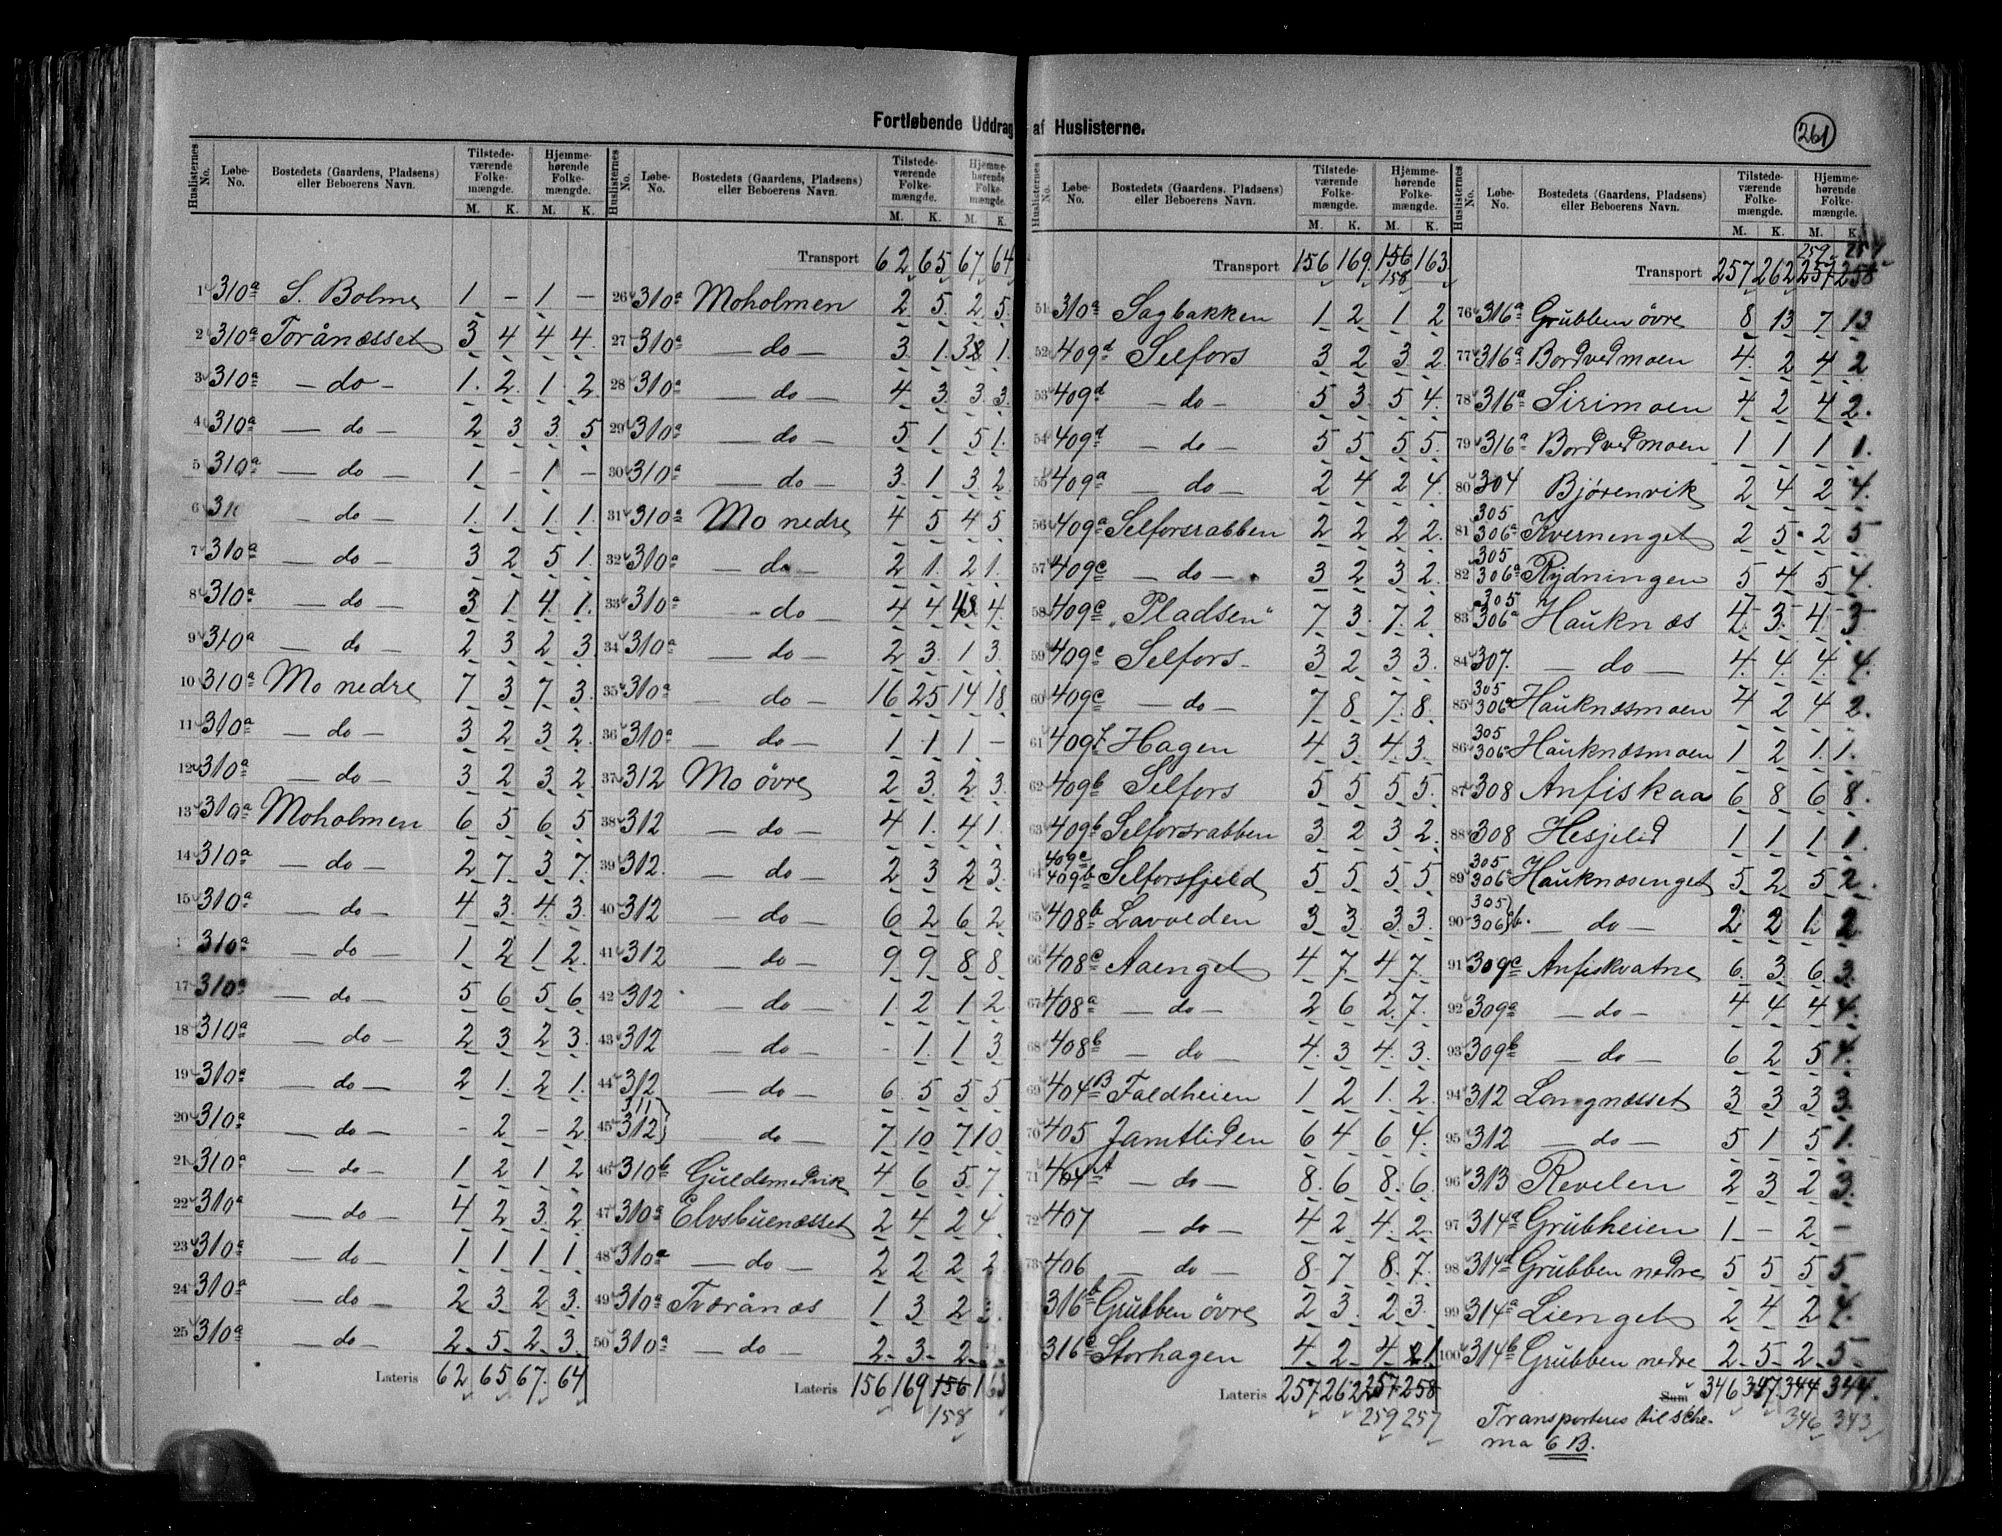 Fortløbende Uddrag af Huslisterne.
261
Huslisternes No. Løbe-No. Bostedets (Gaardens, Pladsens) eller Beboerens Navn. Tilstedeværende Folkemængde. Hjemmehørende Folkemængde.
M. K. M. K.
1 310a S. Bolme 1 - 1 -
2 310a Toránæsset 3 4 4 4
3 310a - do - 1 2 1 2
4 310a - do - 2 3 3 5
5 310a - do - 1 - 1 -
6 310 - do - 1 1 1 1
7 310a - do 3 2 5 1
8 310a - do - 3 1 4 1
9 310a - do 2 3 2 3
10 310a Mo nedre 7 3 7 3
11 310a - do - 3 2 3 2
12 310a - do - 3 2 3 2
13 310a Moholmen 6 5 6 5
14 310a - do - 2 7 3 7
15 310a - do - 4 3 4 3
1 310a - do 1 2 1 2
17 310a - do - 5 6 5 6
18 310a - do 2 3 2 3
19 310a - do - 2 1 2 1
20 310a - do - - 2 - 2
21 310a - do - 1 2 1 2
22 310a - do - 4 2 3 2
23 310a - do - 1 1 1 1
24 310a - do - 2 3 2 3
25 310a - do - 2 5 2 3
Lateris 62 65 67 64
Huslisternes No. Løbe-No. Bostedets (Gaardens, Pladsens) eller Beboerens Navn. Tilstedeværende Folkemængde. Hjemmehørende Folkemængde.
M. K. M. K.
Transport 62 65 67 64
26 310a Moholmen 2 5 2 5
27 310a - do - 3 1 3 1
28 310a - do 4 3 3 3
29 310a - do - 5 1 5 1
30 310a - do - 3 1 3 2
31 310a Mo nedre 4 5 4 5
32 310a - do - 2 1 2 1
33 310a - do 4 4 4
34 310a - do - 2 3 1 3
35 310a - do - 16 25 14 18
36 310a - do - 1 1 1 -
37 312 Mo övre 2 3 2 3
38 312 - do - 4 1 4 1
39 312. - do - 2 3 2 3
40 312 - do - 6 2 6 2
41 312 - do - 9 9 8 8
42 312 - do - 1 2 1 2
43 312 - do - - 1 1 3
44 312 - do - 6 5 5 5
311
45 312 do - 7 10 7 10
46 310b Guldsmedvik 4 6 5 7
47 310a Elvsbuenæsset 2 4 2 4
48 310a - do - 2 2 2 2
49 310a Tværånæs 1 3 2
50 310a - do - 2 3 2
Lateris 156 169 156 163
158
Huslisternes No. Løbe-No. Bostedets (Gaardens, Pladsens) eller Beboerens Navn. Tilstedeværende Folkemængde. Hjemmehørende Folkemængde.
M. K. M. K.
Transport 156 169 156 163
158
51 310a Sagbakken 1 2 1 2
52 409d Selfors 3 2 3 2
53 409d - do - 5 3 5 4
54 409d - do - 5 5 5 5
55 409a - do - 2 4 2 4
56 409a Selforsrabben 2 2 2 2
57 409c - do - 3 2 3 2
58 409c „Pladsen“ 7 3 7 2
59 409c Selfors 3 2 3 3
60 409c - do - 7 8 7 8
61 409f Hagen 4 3 4 3
62 409b Selfors 5 5 5 5
63 409b Selforsrabben 3 2 3 2
409c
64 409b Selforsfjeld 5 5 5 5
65 408b Lavolden 3 3 3 3
66 408c Aaenget 4 7 4 7
67 408a - do - 2 6 2 7
68 408b - do - 4 3 4 3
69 404B Faldheien 1 2 1 2
70 405 Jamtliden 6 4 6 4
71 404A - do - 8 6 8 6
72 407 - do - 4 2 4 2
73 406 - do - 8 7 8 7
316b Grubben övre 2 3 2 3
316c Storhagen 4 2 4 1
Lateris 257 262 257 258
259 257
Huslisternes No. Løbe-No. Bostedets (Gaardens, Pladsens) eller Beboerens Navn. Tilstedeværende Folkemængde. Hjemmehørende Folkemængde.
M. K. M. K.
259 257
Transport 257 262 257 258
76 316a Grubben övre 8 13 7 13
77 316a Bordvedmoen 4 2 4 2
78 316a Sirimoen 4 2 4 2
79 316a Bordvedmoen 1 1 1 1
80 304 Bjørenvik 2 4 2 4
305
81 306a Kvernenget 2 5 2 5
305
82 306a Rydningen 5 4 5 4
305
83 306a Hauknæs 4 3 4 3
84 307. - do - 4 4 4 4
305
85 306a Hauknæsmoen 4 2 4 2
305
86 306a Hauknæsmoen 1 2 1 1
87 308 Anfiskaa 6 8 6 8
88 308 Hesjelid 1 1 1 1
305
89 306a Hauknæsenget 5 2 5 2
305
90 306b - do - 2 2 1 2
91 309c Anfiskvatne 6 3 6 3
92 309a - do - 4 4 4 4
93 309b - do - 6 2 5 4
94 312 Langnæsset 3 3 3 3
95 312 - do - 5 1 5 1
96 313 Revelen 2 3 2 3
97 314a Grubheien 1 - 2 -
98 314a Grubben nedre 5 5 5 5
99 314a Lienget 2 4 2 4
100 314b Grubben nedre 2 5 2 5
Sum 346 347 344 344
346 343
Transporteres til sche-
ma 6 B.